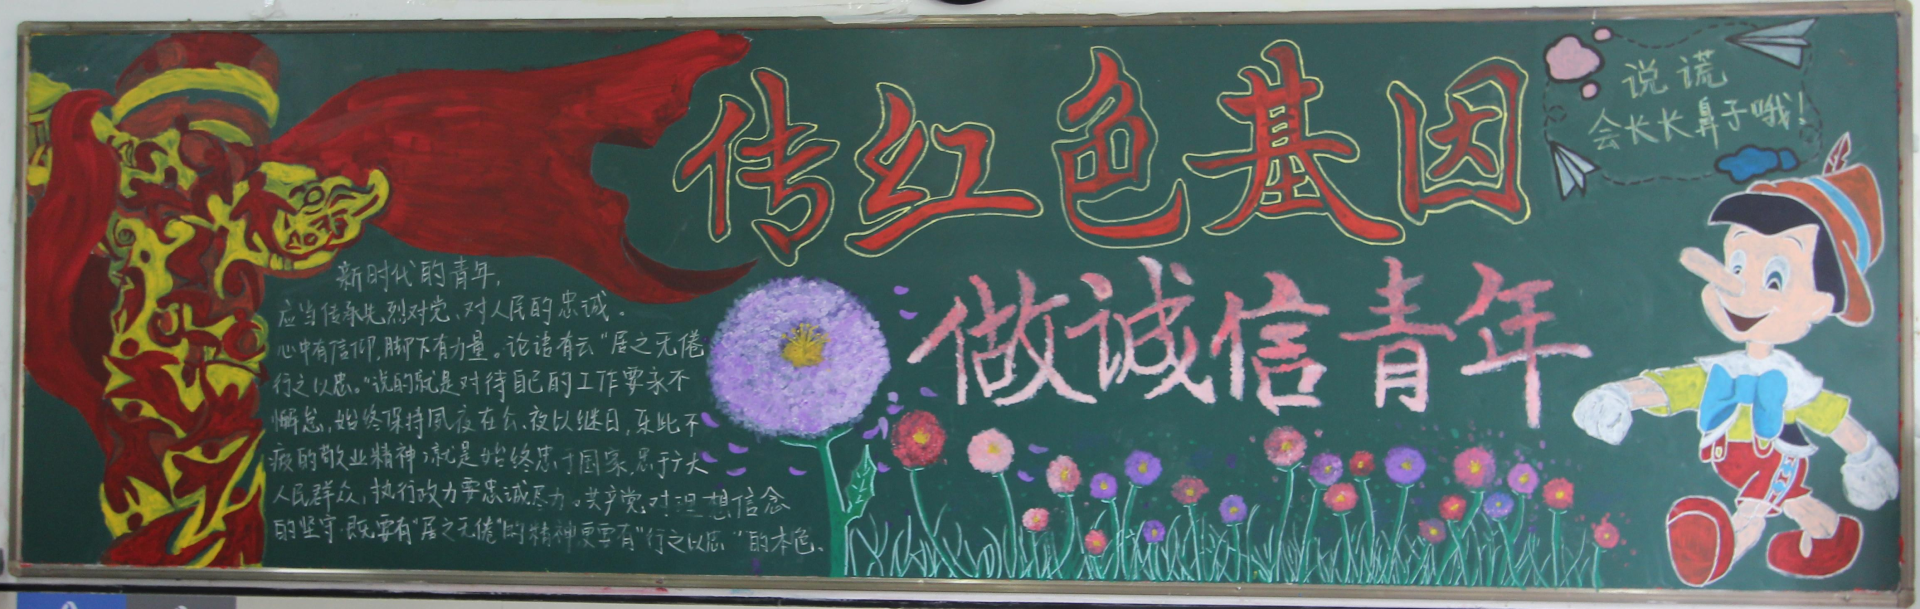 传红色基因
做诚信青年
说谎
会长长鼻子哦!
新时代的青年,
应当传承先烈对党、对人民的忠诚。
心中有信仰,脚下有力量。论语有云“居之无倦
行之以忠。”说的就是对待自己的工作要永不
懈怠,始终保持夙夜在公、夜以继日,乐此不
疲的敬业精神;就是始终忠于国家忠于广大
人民群众,执行政力要忠诚尽力。共产党对理想信念
的坚守.既要有“居之无倦”的精神更要有“行之以忠”的本色、